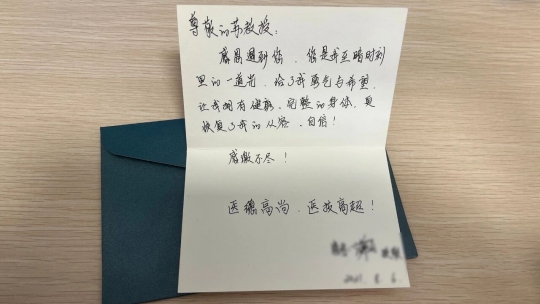 尊敬的苏教授:
感恩遇到您、您是我至暗时刻
里的一道光、给了我勇气与希望,
让我拥有健康、完整的身体、更
恢复了我的从容、自信!
感激不尽!
医德高尚、医技高超!